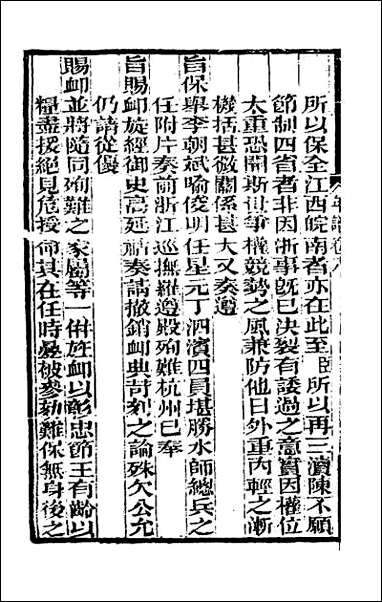 所以保全江西皖南者亦在此至臣所以再三瀆陳不願
節制四省者非因浙事旣已決裂有諉過之意實因權位
太重恐開斯世爭權競勢之風兼防他日外重內輕之漸
機括甚微關係甚大又奏遵
旨保舉李朝斌喻俊明任星元丁泗濱四員堪勝水師總兵之
任附片奏前浙江巡撫羅遵殿殉難杭州已奉
旨賜卹旋經御史高延祜奏請撤銷卹典苛刻之論殊欠公允
仍請從優
賜卹並將隨同殉難之家屬等一併旌卹以彰忠節王有齡以
糧盡援絕見危授命其在任時曡被參劾難保無身後之